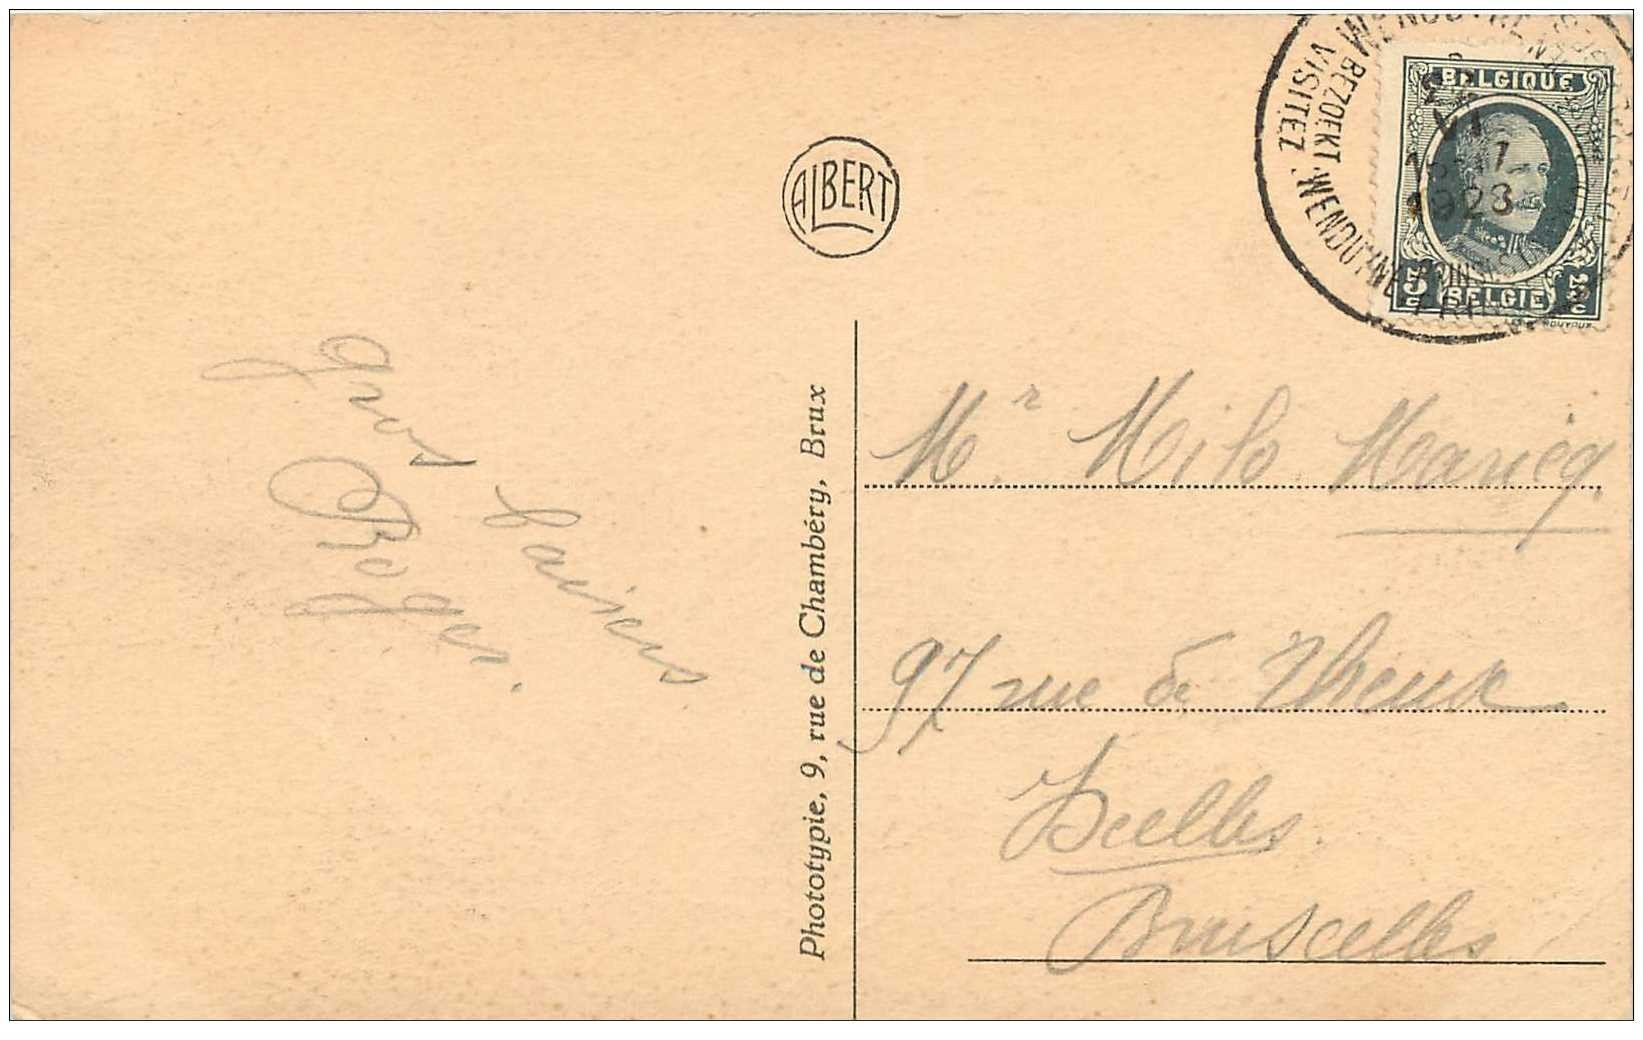 gros
baisers
Roger.
ALBERT
Phototypie, 9, rue de Chambéry, Brux
BEZOEKT WENDUYNE
VISITEZ WENDUYNE
VI
1923
BELGIQUE
5c BELGIE 5c
Mr. Milo Maricq.
97 rue de Theux
Ixelles.
Bruxelles